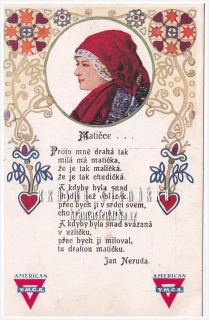 Matičce . . .
Proto mně drahá tak
milá má matička,
že je tak maličká,
že je tak chudičká.
A kdyby byla snad
přec bych ji v srdci svém,
A kdyby byla snad svázána
v uzlíčku,
přec bych ji miloval,
tu drahou matičku.
Jan Neruda.
AMERICAN
Y.M.C.A.
AMERICAN
Y.M.C.A.